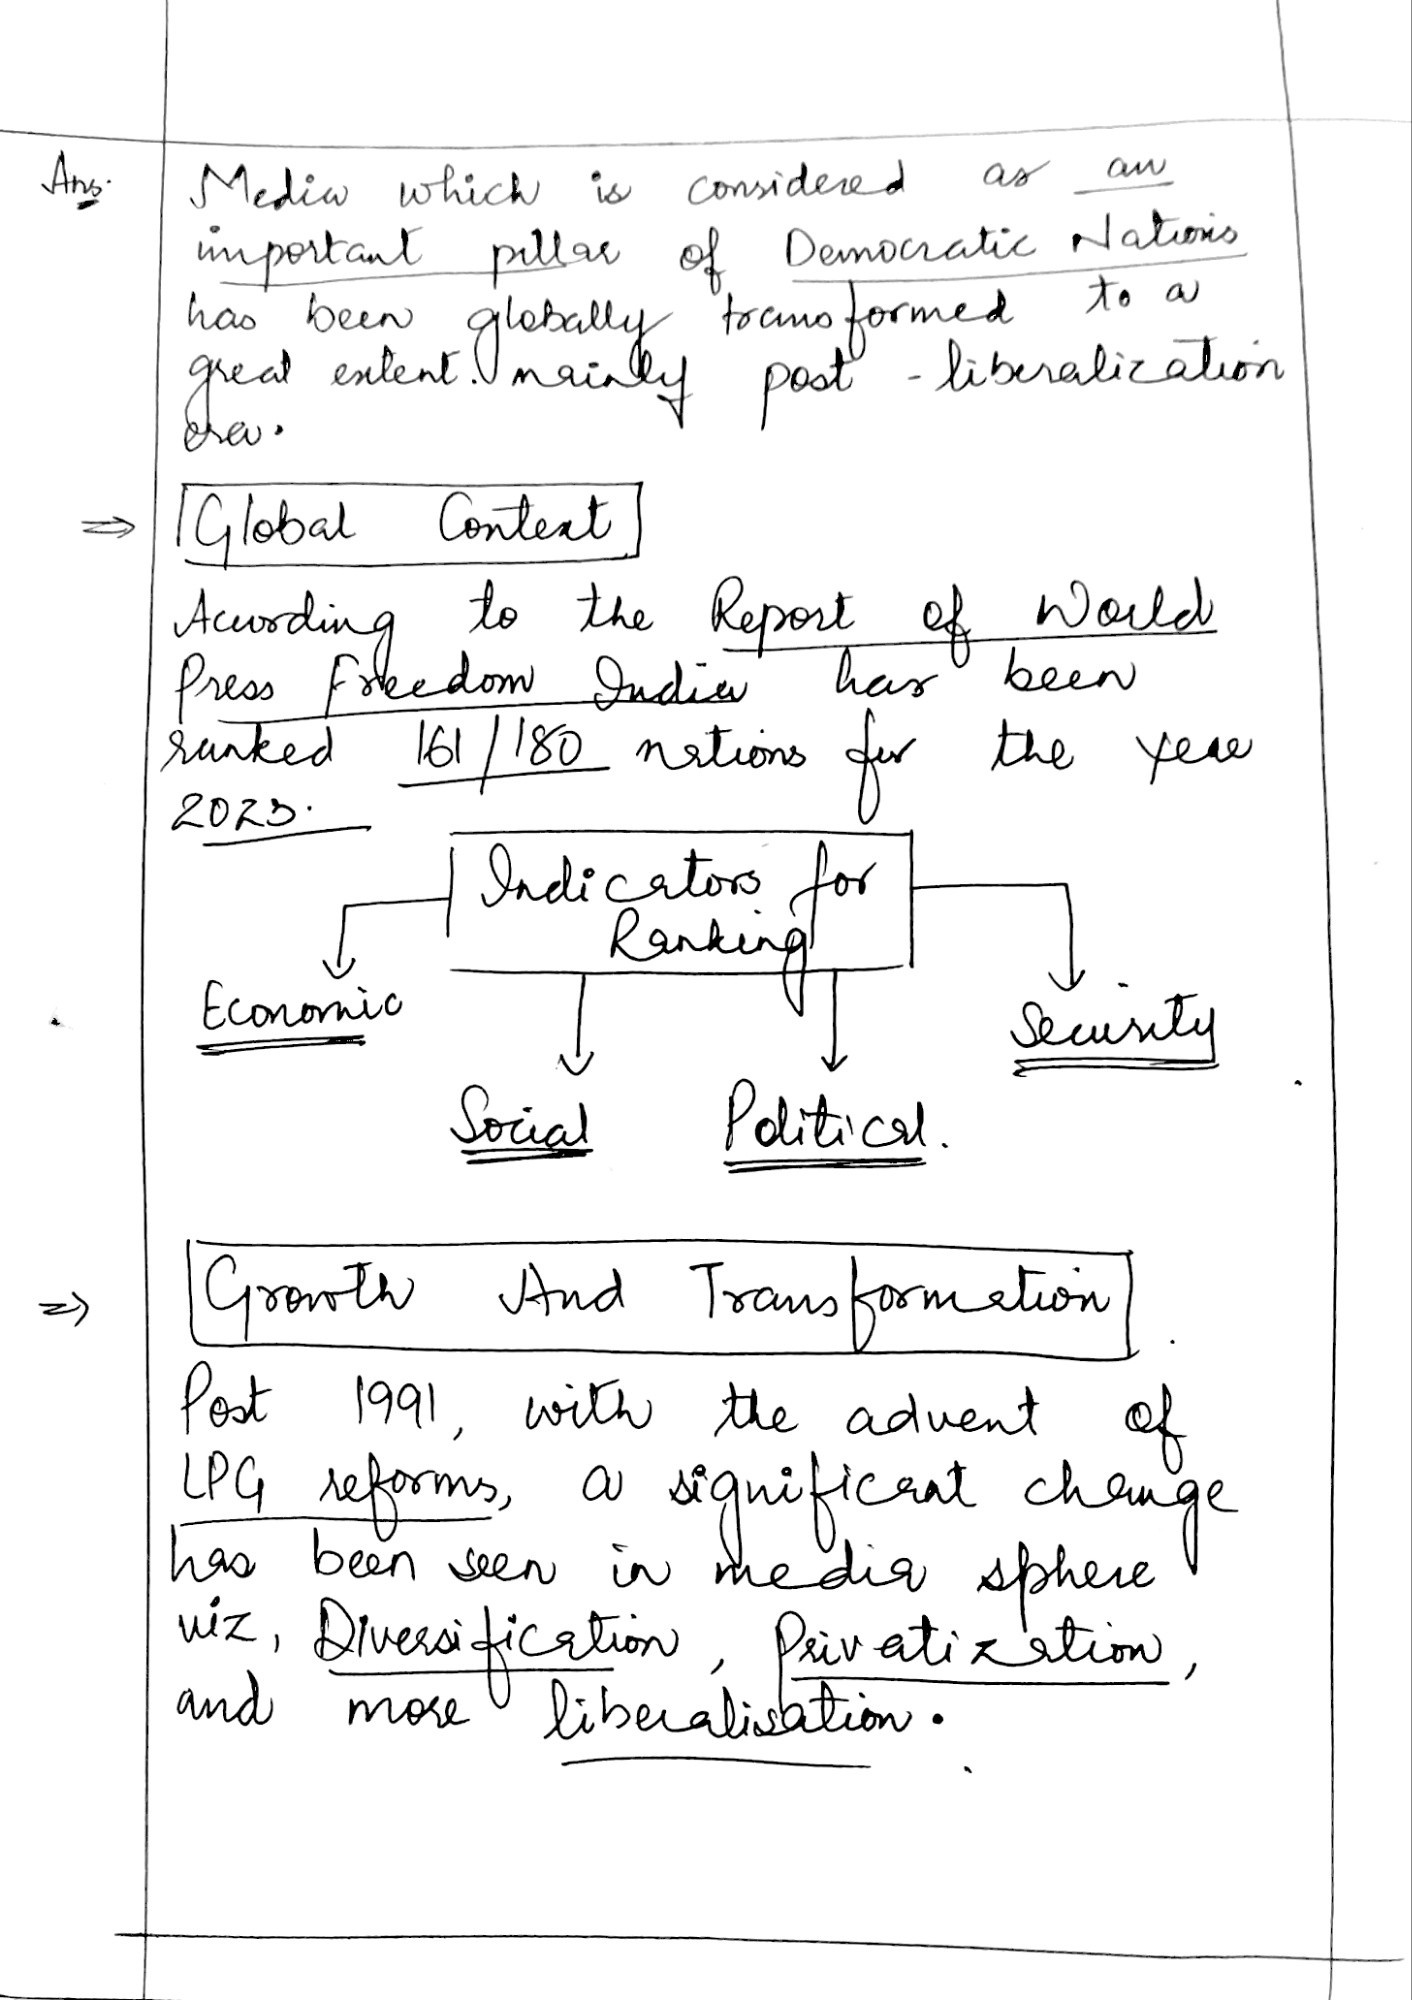 Ans.
Media which is considered as an
important pillar of Democratic Nations
has been globally transformed to a
great extent. mainly post - liberalization
era.
⇒ Global Context
According to the Report of World
Press Freedom India has been
ranked 161/180 nations for the year
2023.
Indicators for
Ranking
Economic
Security
Social Political.
⇒ Growth And Transformation
Post 1991, with the advent of
LPG reforms, a significant change
has been seen in media sphere
viz, Diversification, Privatization,
and more liberalisation.